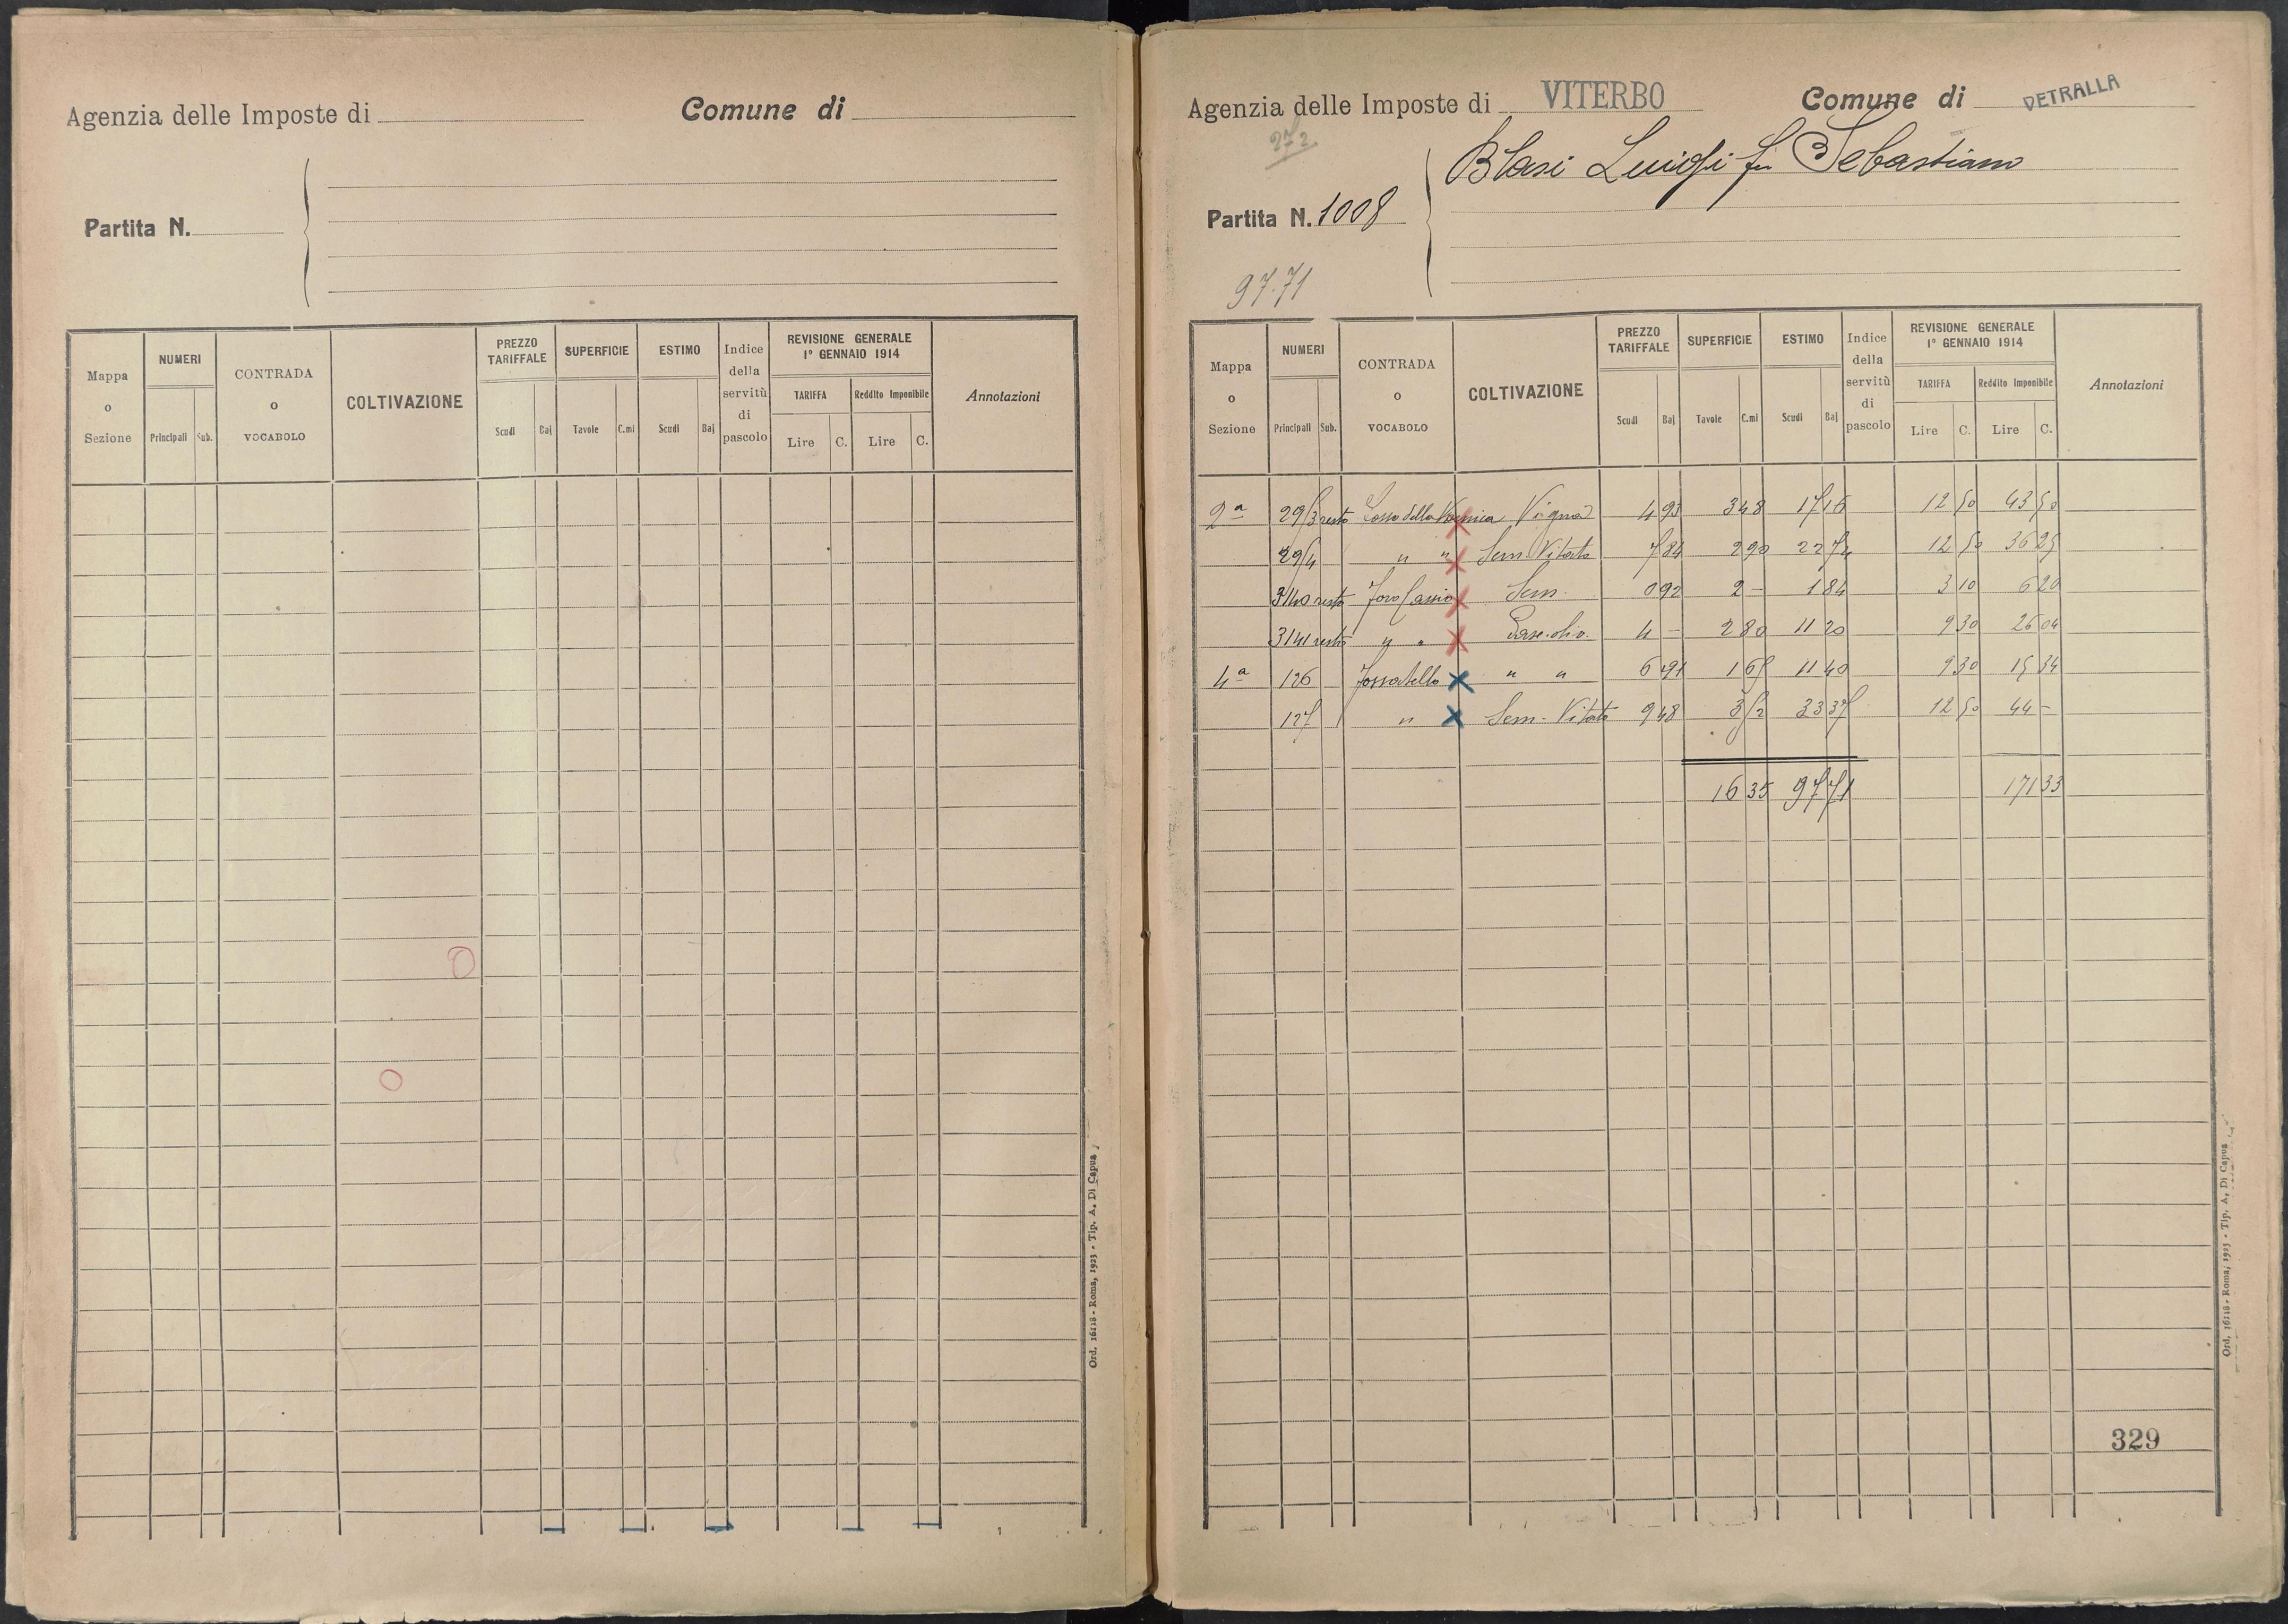 Agenzia delle Imposte di
Comune di
Partita N.
Mappa o Sezione
NUMERI
Principali
Sub.
CONTRADA o VOCABOLO
COLTIVAZIONE
PREZZO TARIFFALE
Scudi
Baj
SUPERFICIE
Tavole
C.mi
ESTIMO
Scudi
Baj
Indice della servitù di pascolo
REVISIONE GENERALE 1° GENNAIO 1914
TARIFFA
Lire
C.
Reddito Imponibile
Lire
C.
Annotazioni
Ord. 16118 - Roma, 1923 - Tip. A. Di Capua
Agenzia delle Imposte di VITERBO
Comune di VETRALLA
272
Blasi Luigi fu Sebastiano
Partita N. 1008
97.71
Mappa o Sezione
NUMERI
Principali
Sub.
CONTRADA o VOCABOLO
COLTIVAZIONE
PREZZO TARIFFALE
Scudi
Baj
SUPERFICIE
Tavole
C.mi
ESTIMO
Scudi
Baj
Indice della servitù di pascolo
REVISIONE GENERALE 1° GENNAIO 1914
TARIFFA
Lire
C.
Reddito Imponibile
Lire
C.
Annotazioni
2a 29/3 resto della Vigna 4 93 3 48 17 16 12 50 43 50
29/4 " " Sem. Vitato 7 84 2 90 22 74 12 50 36 25
3140 resto Foro Cassio Sem. 0 92 2 - 1 84 3 10 6 20
3141 resto " " Pasc. oliv. 4 - 2 80 11 20 9 30 26 04
4a 126 Fossatello " " 6 91 1 65 11 40 9 30 15 34
127 " Sem. Vitato 9 48 3 52 33 37 12 50 44 -
16 35 97 71 171 33
329
Ord. 16118 - Roma, 1923 - Tip. A. Di Capua